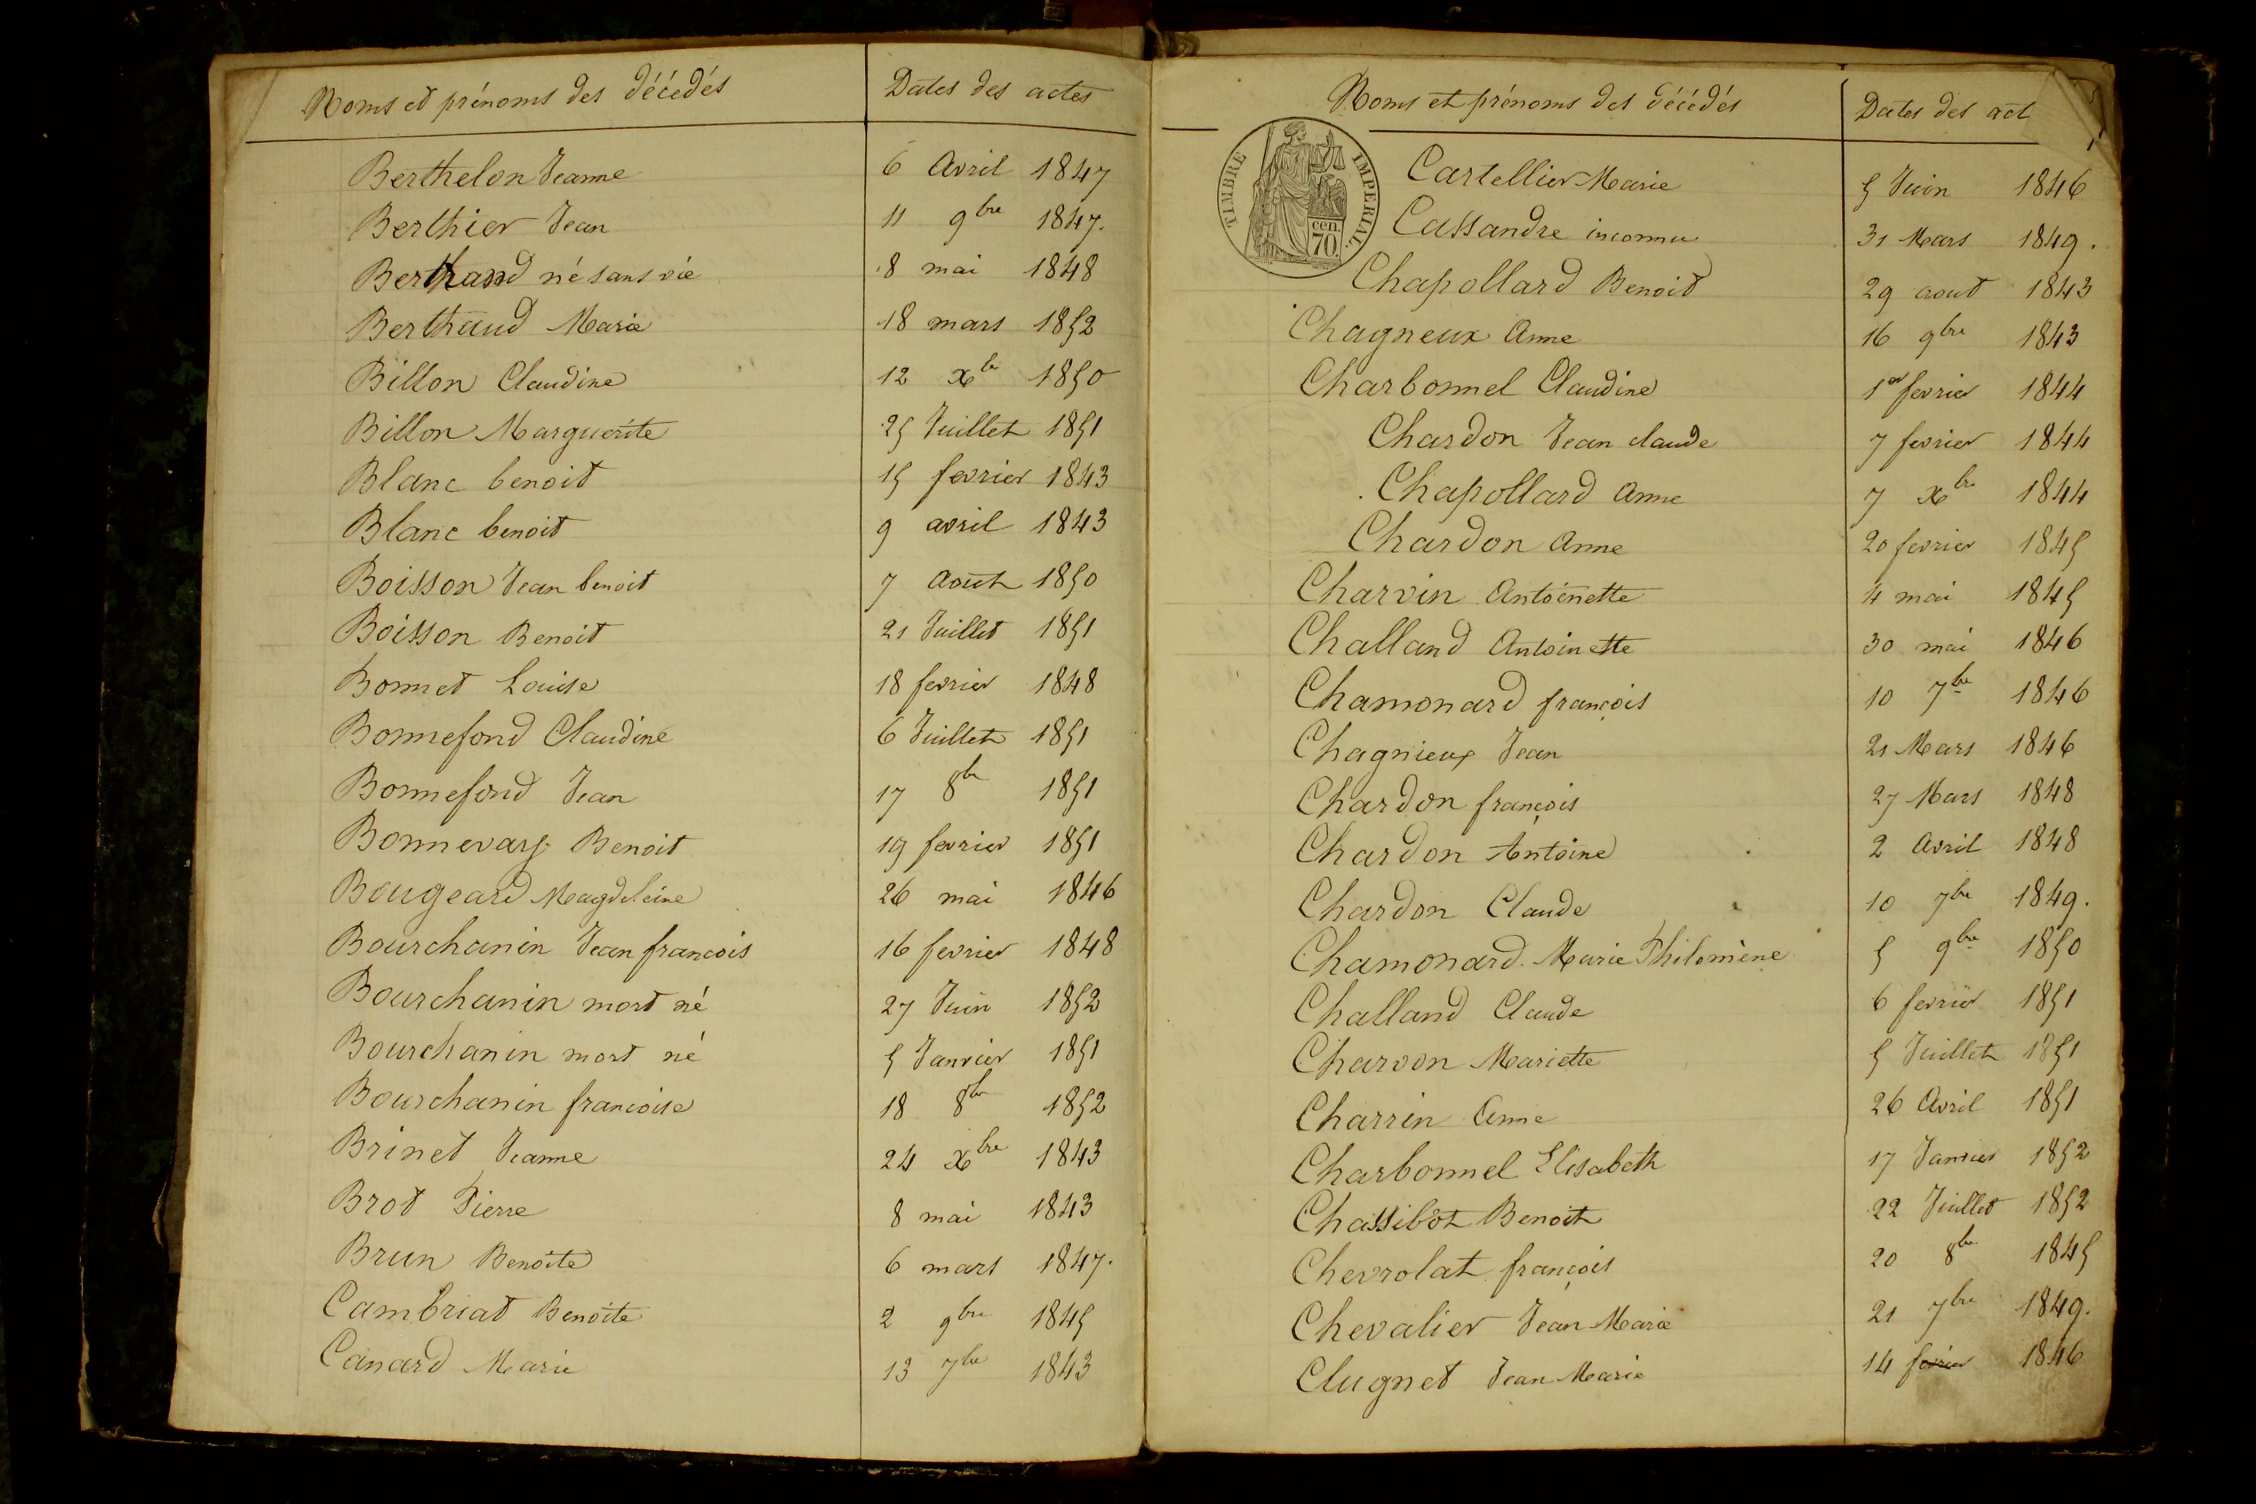 Noms et prénoms des décédés Dates des actes
Berthelon Jeanne 6 Avril 1847
Berthier Jean 11 9bre 1847.
Bertrand né sans vie 8 mai 1848
Berthaud Marie 18 mars 1852
Billon Claudine 12 Xbre 1850
Billon Marguerite 25 Juillet 1851
Blanc benoit 15 fevrier 1843
Blanc benoit 9 avril 1843
Boisson Jean benoit 7 Août 1850
Boisson Benoit 21 Juillet 1851
Bonnet Louise 18 fevrier 1848
Bonnefond Claudine 6 Juillet 1851
Bonnefond Jean 17 8bre 1851
Bonnevay Benoit 19 fevrier 1851
Bougeard Magdeleine 26 mai 1846
Bourchanin Jean francois 16 fevrier 1848
Bourchanin mort né 27 Juin 1852
Bourchanin mort né 5 Janvier 1851
Bourchanin francoise 18 8bre 1852
Brinet Jeanne 24 Xbre 1843
Brot Pierre 8 mai 1843
Brun Benoîte 6 mars 1847.
Cambriat Benoîte 2 9bre 1845
Canard Marie 13 7bre 1843
Noms et prénoms des décédés Dates des act
TIMBRE IMPERIAL.
cen.
70.
Cartellier Marie 5 Juin 1846
Cassandre inconnu 31 Mars 1849.
Chapollard Benoit 29 aout 1843
Chagneux Anne 16 9bre 1843
Charbonnel Claudine 1er fevrier 1844
Chardon Jean claude 7 fevrier 1844
Chapollard Anne 7 Xbre 1844
Chardon Anne 20 fevrier 1845
Charvin Antoinette 4 mai 1845
Challand Antoinette 30 mai 1846
Chamonard françois 10 7bre 1846
Chagnieux Jean 21 Mars 1846
Chardon françois 27 Mars 1848
Chardon Antoine 2 Avril 1848
Chardon Claude 10 7bre 1849.
Chamonard Marie Philomène 5 9bre 1850
Challand Claude 6 fevrier 1851
Charvon Mariette 5 Juillet 1851
Charrin Anne 26 Avril 1851
Charbonnel Elisabeth 17 Janvier 1852
Chassibôt Benoit 22 Juillet 1852
Chevrolat françois 20 8bre 1845
Chevalier Jean Marie 21 7bre 1849.
Clugnet Jean Marie 14 fevrier 1846